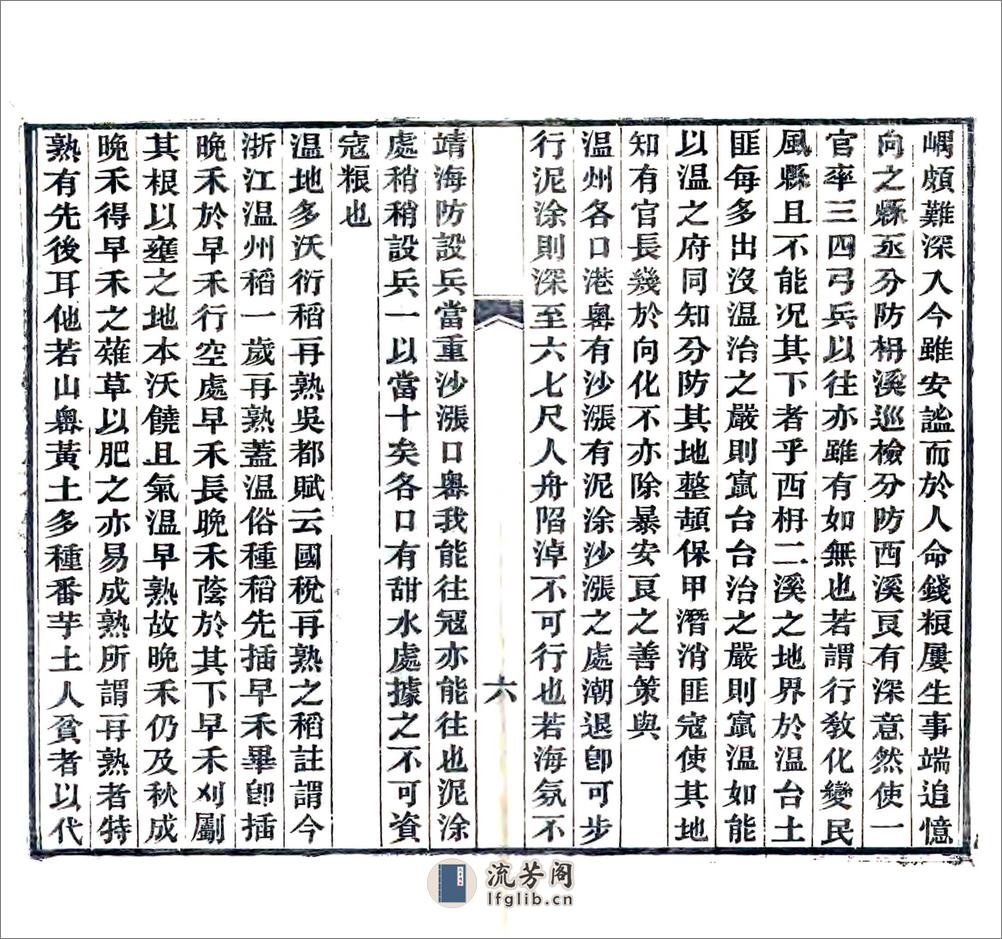 嵎頗難深入今雖安謐而於人命錢糧屢生事端追憶
向之縣丞分防枬溪巡檢分防西溪良有深意然使一
官率三四弓兵以往亦雖有如無也若謂行敎化變民
風縣且不能況其下者乎西枬二溪之地界於温台土
匪每多出沒温治之嚴則竄台台治之嚴則竄温如能
以温之府同知分防其地整頓保甲潛消匪寇使其地
知有官長幾於向化不亦除暴安良之善策與
温州各口港嶴有沙漲有泥涂沙漲之處潮退卽可步
行泥涂則深至六七尺人舟陷淖不可行也若海氛不
六
靖海防設兵當重沙漲口嶴我能往寇亦能往也泥涂
處稍稍設兵一以當十矣各口有甜水處據之不可資
寇糧也
温地多沃衍稻再熟吳都賦云國稅再熟之稻註謂今
浙江温州稻一歲再熟蓋温俗種稻先插早禾畢卽插
晚禾於早禾行空處早禾長晚禾蔭於其下早禾刈劚
其根以壅之地本沃饒且氣温早熟故晚禾仍及秋成
晚禾得早禾之薙草以肥之亦易成熟所謂再熟者特
熟有先後耳他若山嶴黃土多種番芋土人貧者以代
流芳阁
lfglib.cn